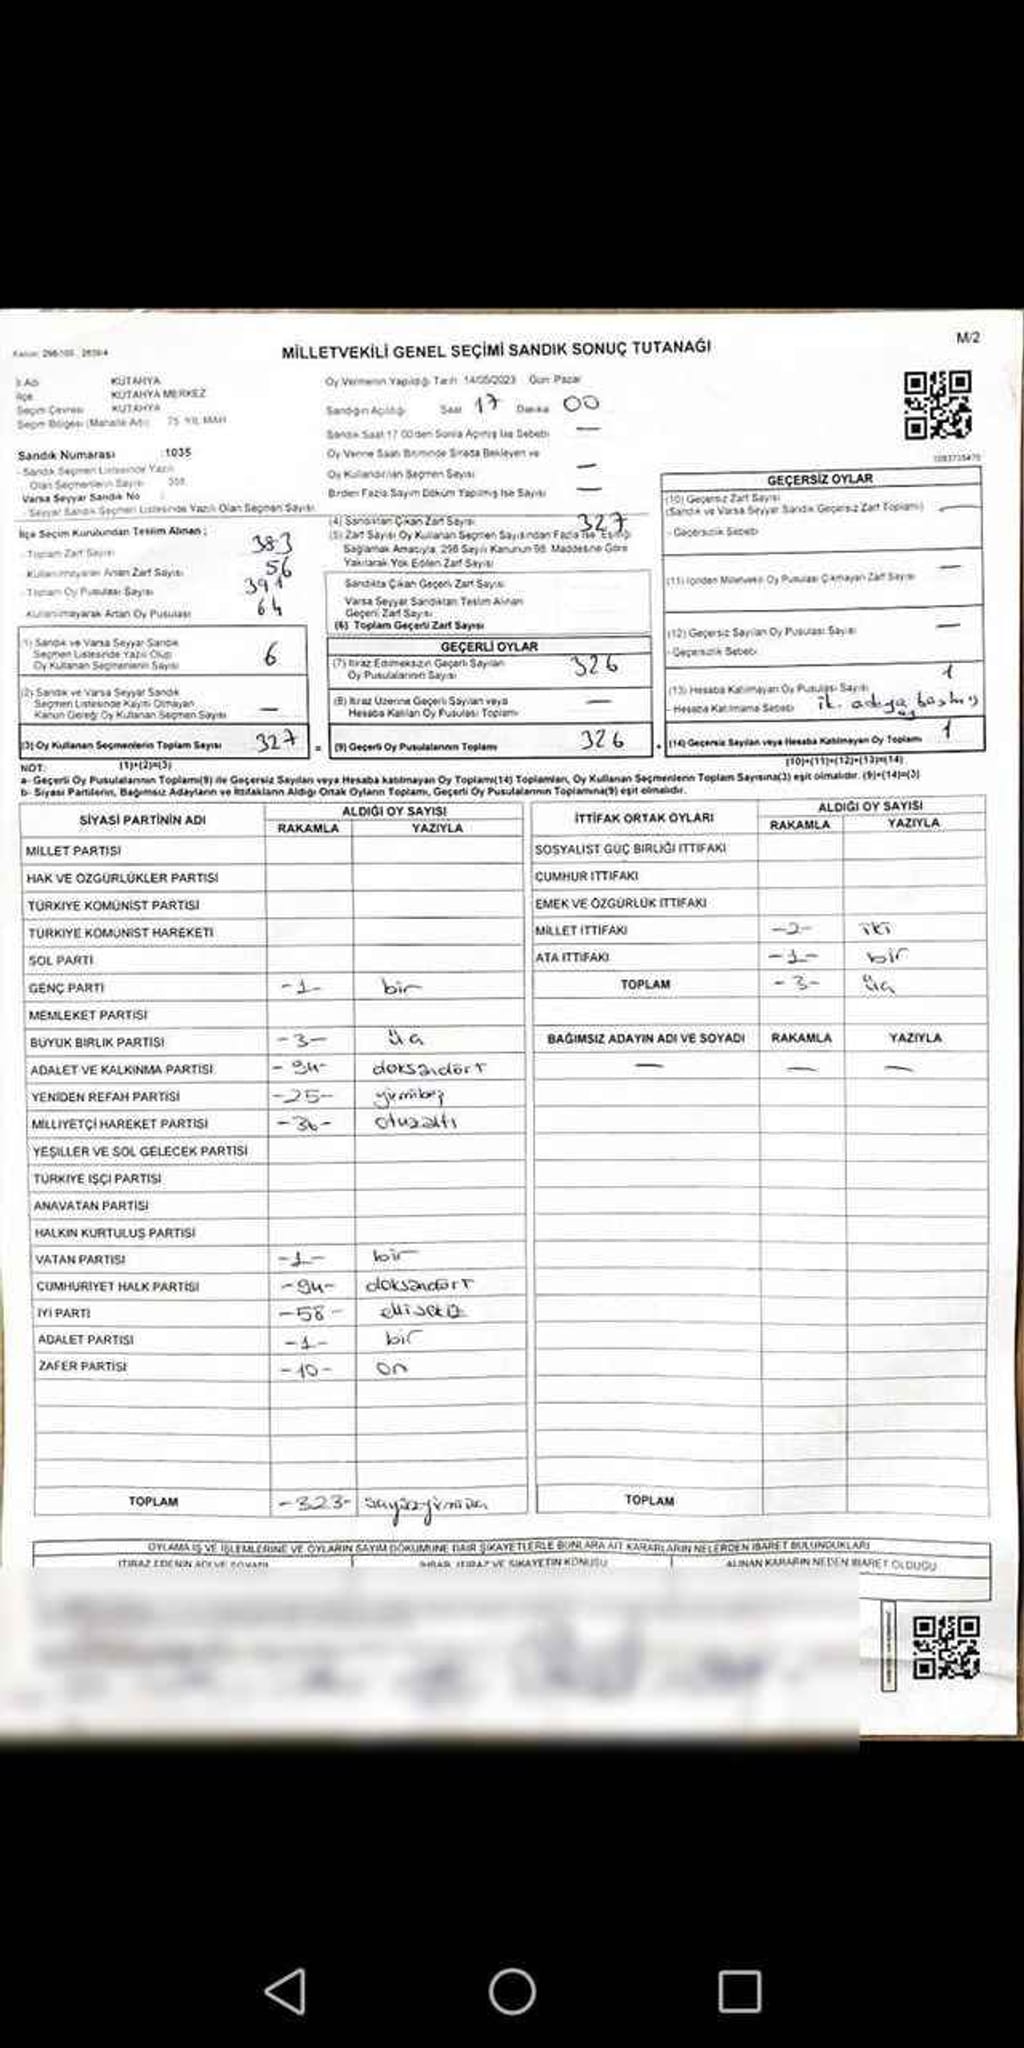 Kanun: 298/105 , 2839/4
MİLLETVEKİLİ GENEL SEÇİMİ SANDIK SONUÇ TUTANAĞI
M/2
İl Adı KÜTAHYA
İlçe KÜTAHYA MERKEZ
Seçim Çevresi KÜTAHYA
Seçim Bölgesi (Mahalle Adı) 75. YIL MAH.
Sandık Numarası :1035
- Sandık Seçmen Listesinde Yazılı
Olan Seçmenlerin Sayısı 358
Varsa Seyyar Sandık No :
- Seyyar Sandık Seçmen Listesinde Yazılı Olan Seçmen Sayısı
Oy Vermenin Yapıldığı Tarih 14/05/2023 Gün Pazar
Sandığın Açılığı Saat 17 Dakika 00
Sandık Saat 17 00'den Sonra Açılmış İse Sebebi —
Oy Verme Saati Bitiminde Sırada Bekleyen ve
Oy Kullandırılan Seçmen Sayısı —
Birden Fazla Sayım Döküm Yapılmış İse Sayısı —
İlçe Seçim Kurulundan Teslim Alınan ;
- Toplam Zarf Sayısı 383
- Kullanılmayarak Artan Zarf Sayısı 56
- Toplam Oy Pusulası Sayısı 391
- Kullanılmayarak Artan Oy Pusulası 64
(1) Sandık ve Varsa Seyyar Sandık
Seçmen Listesinde Yazılı Olup
Oy Kullanan Seçmenlerin Sayısı 6
(2) Sandık ve Varsa Seyyar Sandık
Seçmen Listesinde Kaydı Olmayan
Kanun Gereği Oy Kullanan Seçmen Sayısı —
(3) Oy Kullanan Seçmenlerin Toplam Sayısı 327
(4) Sandıktan Çıkan Zarf Sayısı 327
(5) Zarf Sayısı Oy Kullanan Seçmen Sayısından Fazla İse, Eşitliği
Sağlamak Amacıyla, 298 Sayılı Kanunun 98. Maddesine Göre
Yakılarak Yok Edilen Zarf Sayısı
Sandıkta Çıkan Geçerli Zarf Sayısı
Varsa Seyyar Sandıktan Teslim Alınan
Geçerli Zarf Sayısı
(6) Toplam Geçerli Zarf Sayısı
GEÇERLİ OYLAR
(7) İtiraz Edilmeksizin Geçerli Sayılan
Oy Pusulalarının Sayısı 326
(8) İtiraz Üzerine Geçerli Sayılan veya
Hesaba Katılan Oy Pusulası Toplamı —
= (9) Geçerli Oy Pusulalarının Toplamı 326
1093735475
GEÇERSİZ OYLAR
(10) Geçersiz Zarf Sayısı
(Sandık ve Varsa Seyyar Sandık Geçersiz Zarf Toplamı) —
- Geçersizlik Sebebi
(11) İçinden Milletvekili Oy Pusulası Çıkmayan Zarf Sayısı —
(12) Geçersiz Sayılan Oy Pusulası Sayısı —
- Geçersizlik Sebebi
(13) Hesaba Katılmayan Oy Pusulası Sayısı 1
- Hesaba Katılmama Sebebi
(14) Geçersiz Sayılan veya Hesaba Katılmayan Oy Toplamı 1
NOT: (1)+(2)=(3) (10)+(11)+(12)+(13)=(14)
a- Geçerli Oy Pusulalarının Toplamı(9) ile Geçersiz Sayılan veya Hesaba katılmayan Oy Toplamı(14) Toplamları, Oy Kullanan Seçmenlerin Toplam Sayısına(3) eşit olmalıdır. (9)+(14)=(3)
b- Siyasi Partilerin, Bağımsız Adayların ve İttifakların Aldığı Ortak Oyların Toplamı, Geçerli Oy Pusulalarının Toplamına(9) eşit olmalıdır.
SİYASİ PARTİNİN ADI ALDIĞI OY SAYISI
RAKAMLA YAZIYLA
MİLLET PARTİSİ
HAK VE ÖZGÜRLÜKLER PARTİSİ
TÜRKİYE KOMÜNİST PARTİSİ
TÜRKİYE KOMÜNİST HAREKETİ
SOL PARTİ
GENÇ PARTİ -1- bir
MEMLEKET PARTİSİ
BÜYÜK BİRLİK PARTİSİ -3- üç
ADALET VE KALKINMA PARTİSİ -94- doksandört
YENİDEN REFAH PARTİSİ -25- yirmibeş
MİLLİYETÇİ HAREKET PARTİSİ -36- otuzaltı
YEŞİLLER VE SOL GELECEK PARTİSİ
TÜRKİYE İŞÇİ PARTİSİ
ANAVATAN PARTİSİ
HALKIN KURTULUŞ PARTİSİ
VATAN PARTİSİ -1- bir
CUMHURİYET HALK PARTİSİ -94- doksandört
İYİ PARTİ -58- ellisekiz
ADALET PARTİSİ -1- bir
ZAFER PARTİSİ -10- on
TOPLAM -323-
İTTİFAK ORTAK OYLARI ALDIĞI OY SAYISI
RAKAMLA YAZIYLA
SOSYALİST GÜÇ BİRLİĞİ İTTİFAKI
CUMHUR İTTİFAKI
EMEK VE ÖZGÜRLÜK İTTİFAKI
MİLLET İTTİFAKI -2- iki
ATA İTTİFAKI -1- bir
TOPLAM -3- üç
BAĞIMSIZ ADAYIN ADI VE SOYADI RAKAMLA YAZIYLA
— — —
TOPLAM
OYLAMA İŞ VE İŞLEMLERİNE VE OYLARIN SAYIM DÖKÜMÜNE DAİR ŞİKAYETLERLE BUNLARA AİT KARARLARIN NELERDEN İBARET BULUNDUKLARI
İTİRAZ EDENİN ADI VE SOYADI İHBAR, İTİRAZ VE ŞİKAYETİN KONUSU ALINAN KARARIN NEDEN İBARET OLDUĞU